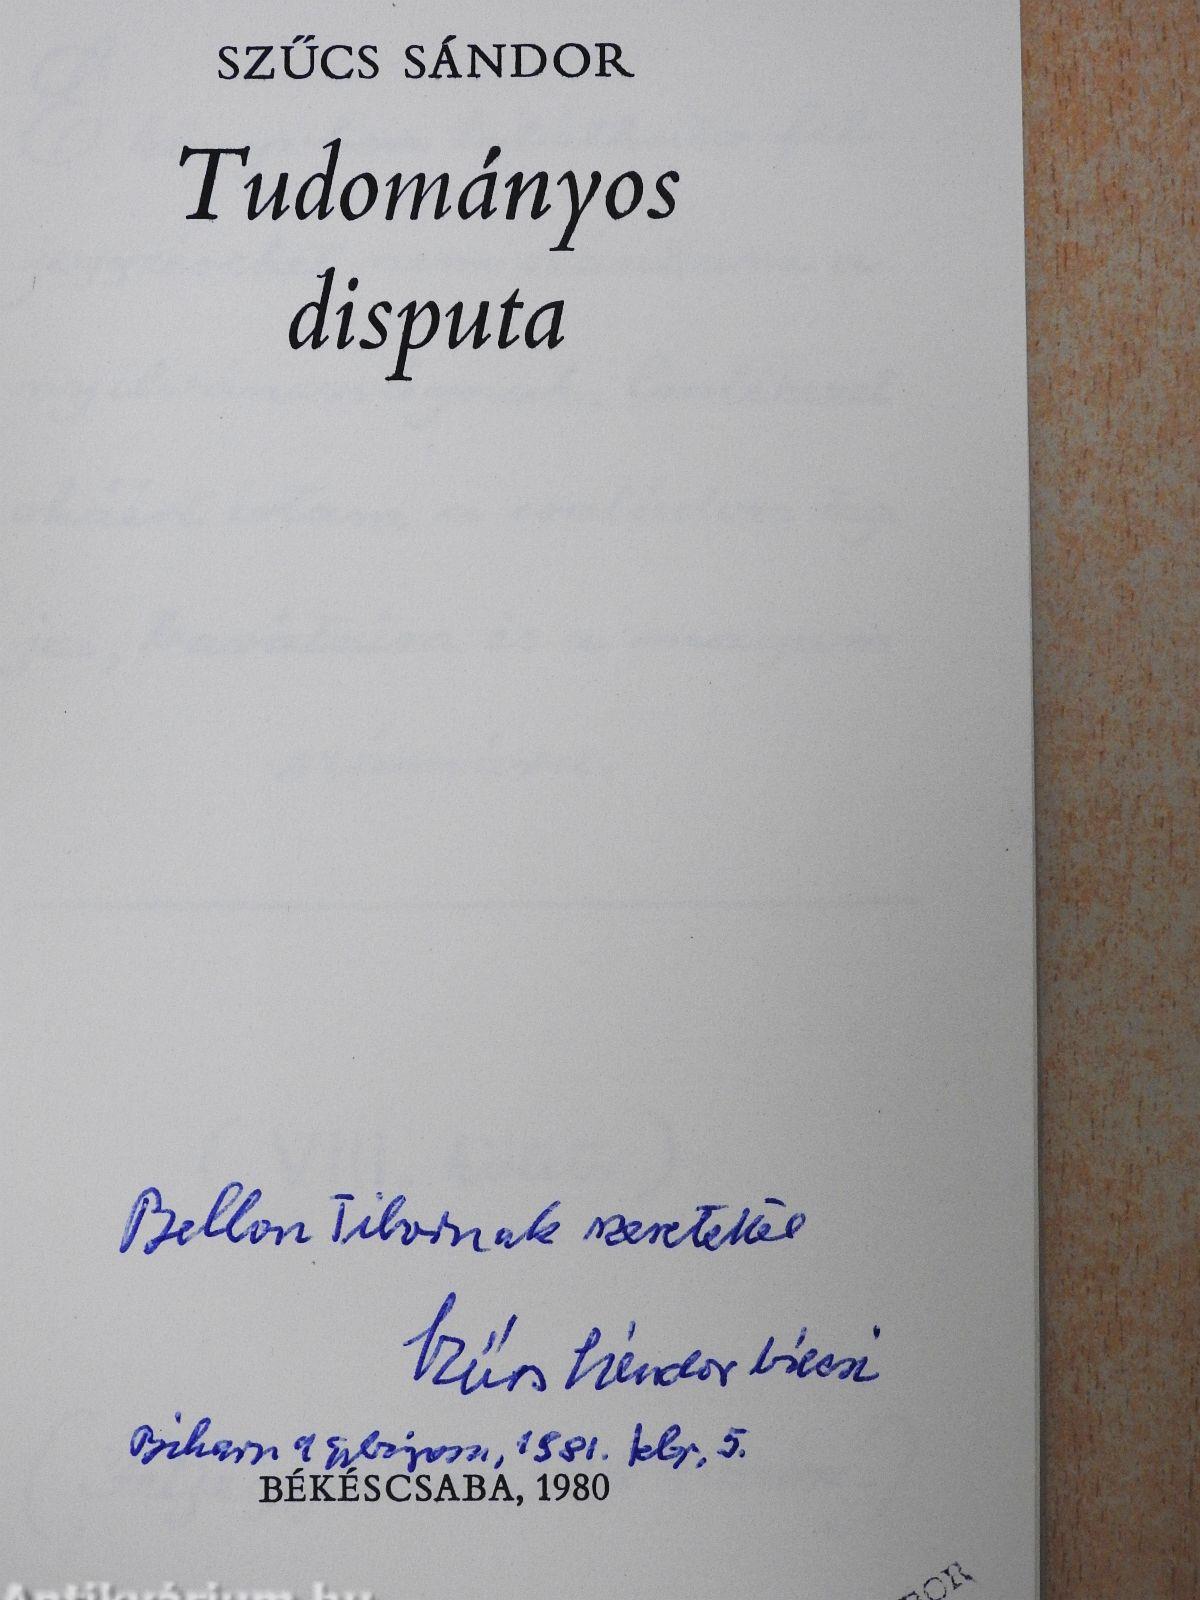 SZŰCS SÁNDOR
Tudományos
disputa
Bellon Tibornak szeretettel
Szűcs Sándor bácsi
Biharnagybajom, 1981. febr. 5.
BÉKÉSCSABA, 1980
BOR
Antikvárium.hu